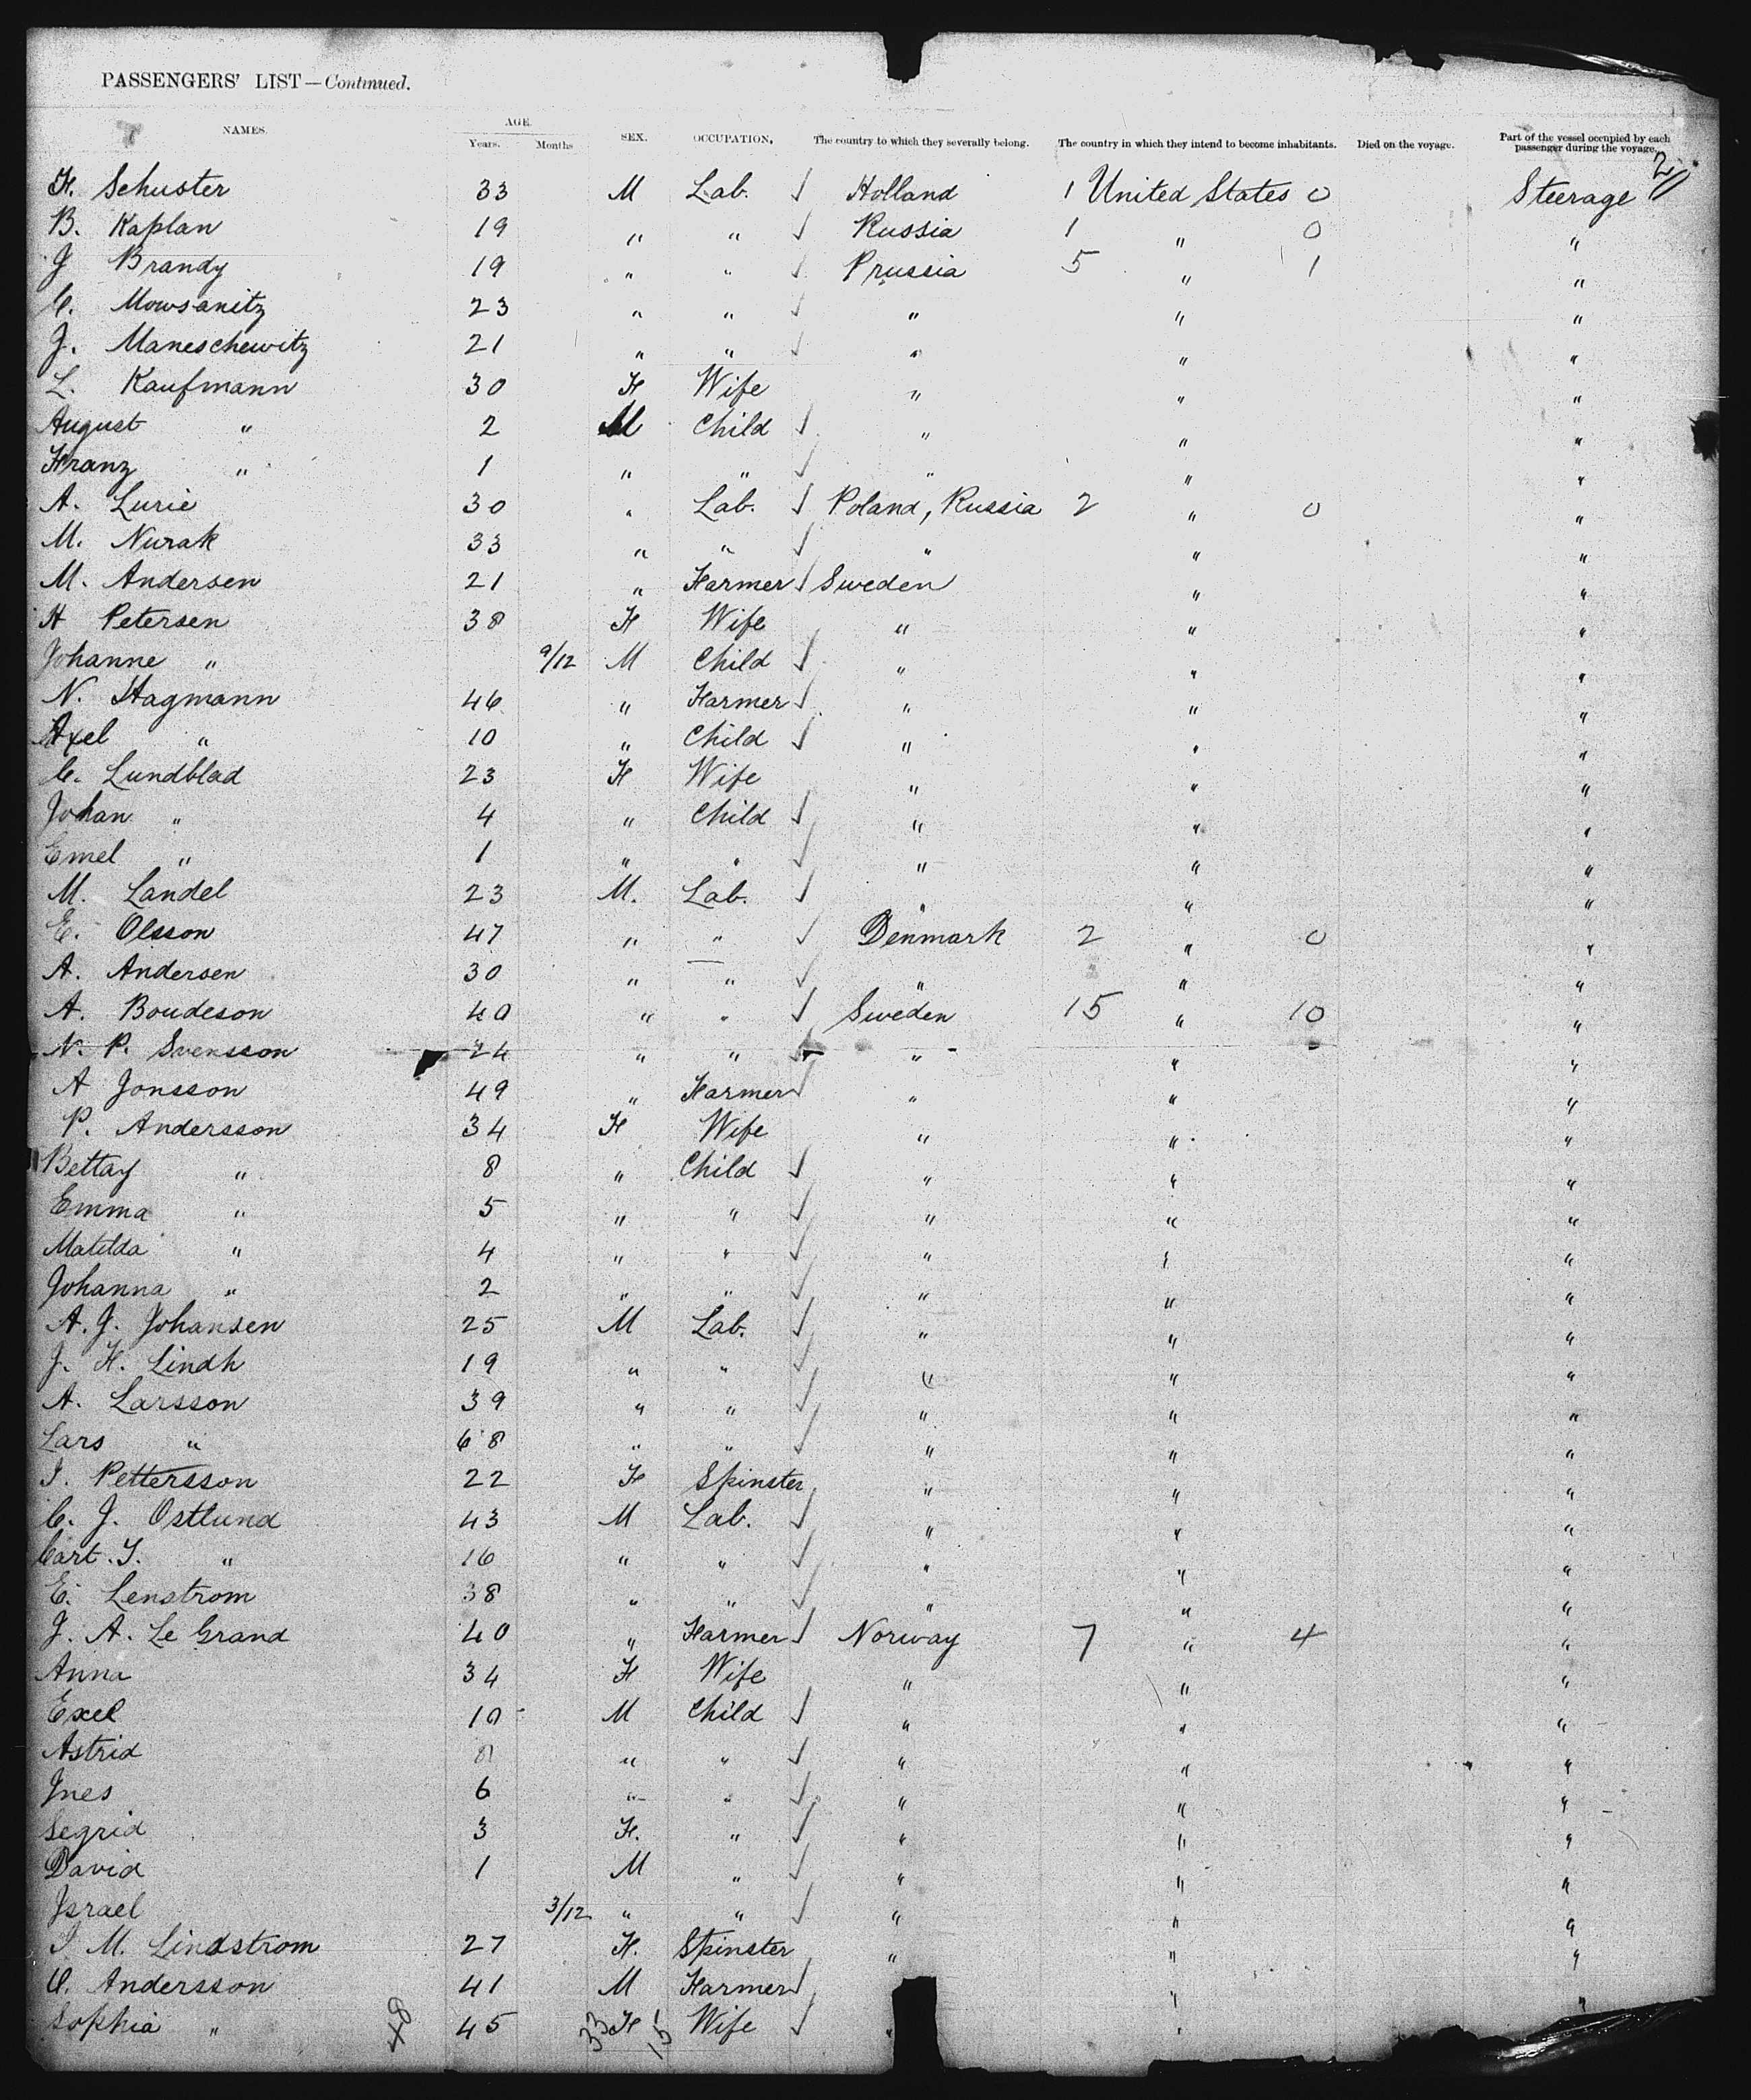 PASSENGERS' LIST—Continued.
NAMES. AGE. Years. Months SEX. OCCUPATION. The country to which they severally belong. The country in which they intend to become inhabitants. Died on the voyage. Part of the vessel occupied by each passenger during the voyage.
F. Schuster 33 M Lab. ✓ Holland 1 United States 0 Steerage
B. Kaplan 19 " " ✓ Russia 1 " 0 "
J Brandy 19 " " ✓ Prussia 5 " 1 "
C. Mowsanitz 23 " " ✓ " " "
J. Maneschewitz 21 " " ✓ " " "
L. Kaufmann 30 F Wife " " "
August " 2 M Child ✓ " " "
Franz " 1 " " ✓ " " "
A. Lurie 30 " Lab. ✓ Poland, Russia 2 " 0 "
M. Nurak 33 " " ✓ " " "
M. Andersen 21 " Farmer ✓ Sweden " "
H Petersen 38 F Wife " " "
Johanne " 9/12 M Child ✓ " " "
N. Hagmann 46 " Farmer ✓ " " "
Axel " 10 " Child ✓ " " "
C. Lundblad 23 F Wife " " "
Johan " 4 " Child ✓ " " "
Emel " 1 " " ✓ " " "
M. Landel 23 M. Lab. ✓ " " "
E. Olsson 47 " " ✓ Denmark 2 " 0 "
A. Andersen 30 " " ✓ " " "
A. Boudeson 40 " " ✓ Sweden 15 " 10 "
N. P. Svensson 24 " " ✓ " " "
A Jonsson 49 " Farmer ✓ " " "
P. Andersson 34 F Wife " " "
Bettay " 8 " Child ✓ " " "
Emma " 5 " " ✓ " " "
Matilda " 4 " " ✓ " " "
Johanna " 2 " " ✓ " " "
A. J. Johansen 25 M Lab. ✓ " " "
J. F. Lindh 19 " " ✓ " " "
A. Larsson 39 " " ✓ " " "
Lars " 68 " " ✓ " " "
I. Pettersson 22 F Spinster " " "
C. J. Ostlund 43 M Lab. ✓ " " "
Cart. I. " 16 " " ✓ " " "
E. Lenstrom 38 " " ✓ " " "
J. A. Le Grand 40 " Farmer ✓ Norway 7 " 4 "
Anna 34 F Wife " " "
Exel 10 M Child ✓ " " "
Astrid 8 " " ✓ " " "
Ines 6 " " ✓ " " "
Segrid 3 F. " ✓ " " "
David 1 M " ✓ " " "
Israel 3/12 " " ✓ " " "
I M. Lindstrom 27 F. Spinster " " "
C. Andersson 41 M Farmer ✓ " "
Sophia " 48 45 33 F 15 Wife ✓ " "